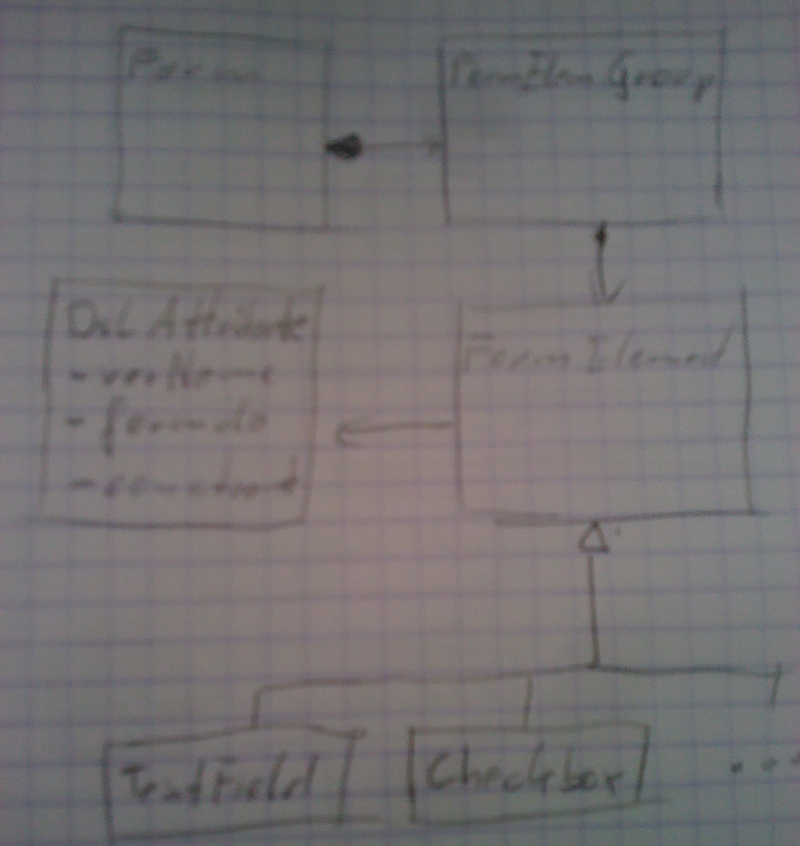 Form
FormElemGroup
Dat Attribute
- varName
- formula
- constraint
Form Element
TextField
Checkbox
...